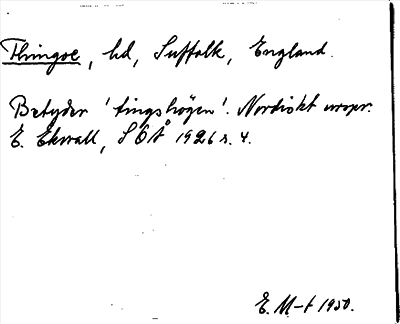 Thingoe, hd, Suffolk, England.
Betyder 'tingshögen'. Nordiskt urspr.
E. Ekwall, SOÅ 1926 s. 4.
E. M-t 1950.